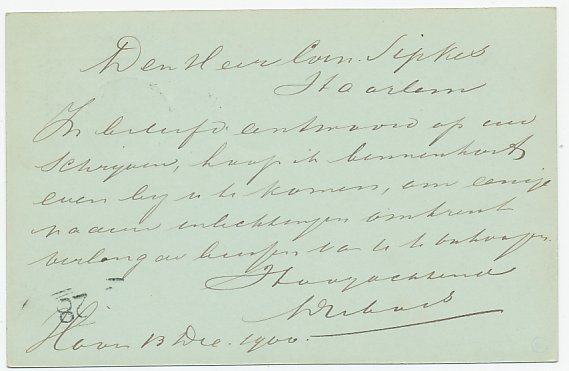 Den Heer Corn. Sipkes
Haarlem
In beleefd antwoord op uw
schrijven, hoop ik binnenkort
even bij u te komen, om eenige
inlichtingen omtrent
van u te ontvangen.
Hoogachtend
Hoorn 13 Dec. 1900.